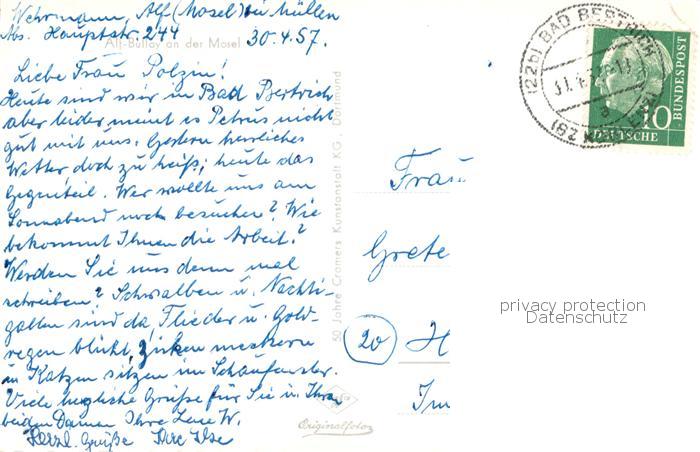 Wehrmann, Alf (Mosel) bei Müllen
Abs. Hauptstr. 244
30.4.57.
Alf-Bullay an der Mosel
Liebe Frau Polzin!
Heute sind wir in Bad Bertrich
aber leider meint es Petrus nicht
gut mit uns. Gestern herrliches
Wetter, doch zu heiß; heute das
Gegenteil. Wer wollte uns am
Sonnabend noch besuchen? Wie
bekommt Ihnen die Arbeit?
Werden Sie uns denn mal
schreiben? Schwalben u. Nachti-
gallen sind da, Flieder u. Gold-
regen blüht,
u. Katzen sitzen im Schaufenster.
Viele herzliche Grüße für Sie u. Ihre
beiden Damen Ihre W.
Herzl. Grüße Ihre Ilse
50 Jahre Cramers Kunstanstalt KG., Dortmund
Originalfoto
Frau
Grete
20 H
Im
(22b) BAD BERTRICH
DEUTSCHE
BUNDESPOST
10
privacy protection
Datenschutz